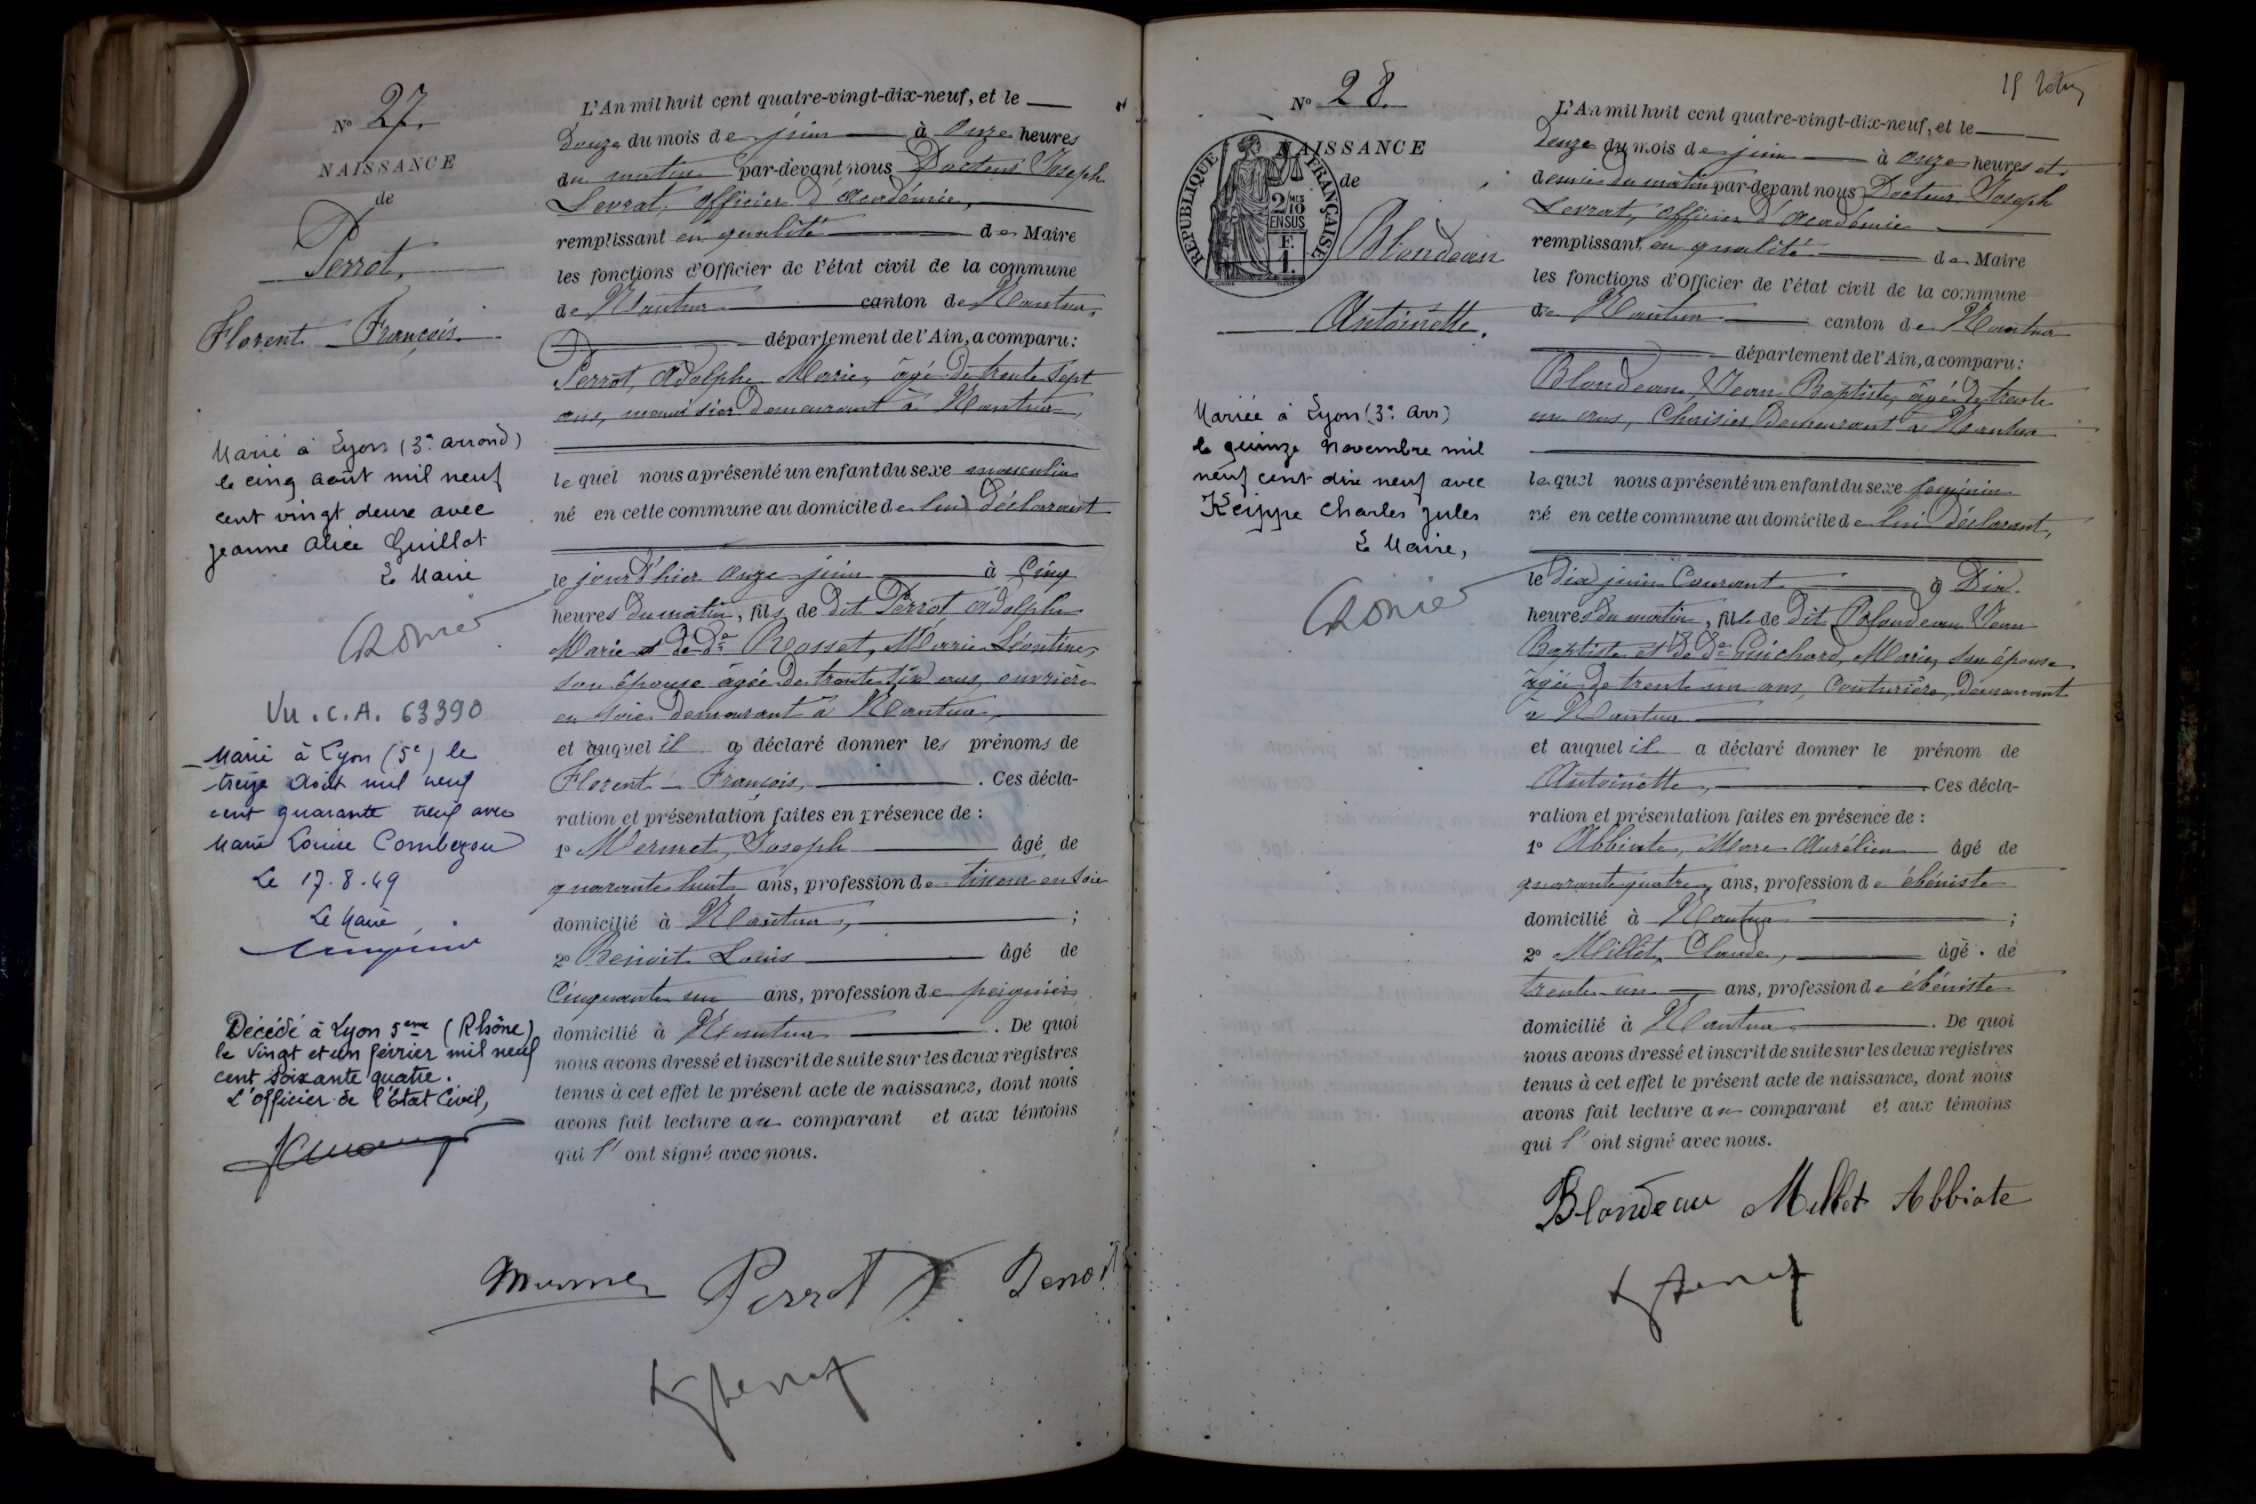 N° 27.
NAISSANCE
de
Perrot,
Florent - François.
Marié à Lyon (3e arrond)
le cinq août mil neuf
cent vingt deux avec
Jeanne Alice Guillot
Le Maire
Vu . C.A. 63390
Marié à Lyon (5e) le
treize Août mil neuf
cent quarante neuf avec
Marie Louise Combezou
Le 17.8.49
Le Maire
Décédé à Lyon 5ème (Rhône)
le vingt et un février mil neuf
cent soixante quatre.
L'officier de l'Etat Civil,
L'An mil huit cent quatre-vingt-dix-neuf, et le
Douze du mois de juin à Onze heures
du matin par-devant nous Docteur Joseph
Levrat, Officier d'Académie,
remplissant en qualité de Maire
les fonctions d'Officier de l'état civil de la commune
de Nantua canton de Nantua,
département de l'Ain, a comparu:
Perrot, Adolphe Marie, âgé de trente sept
ans, menuisier demeurant à Nantua,
lequel nous a présenté un enfant du sexe masculin
né en cette commune au domicile de lui déclarant
le jour d'hier onze juin à Cinq
heures du matin, fils de dit Perrot, Adolphe
Marie et de De Rosset, Marie Léontine,
son épouse âgée de trente six ans, ouvrière
en soie demeurant à Nantua,
et auquel il a déclaré donner les prénoms de
Florent - François, . Ces décla-
ration et présentation faites en présence de :
1° Mermet, Joseph âgé de
quarante huit ans, profession de tisseur en soie
domicilié à Nantua, ;
2° Benoit Louis âgé de
Cinquante un ans, profession de peignier
domicilié à Nantua . De quoi
nous avons dressé et inscrit de suite sur les deux registres
tenus à cet effet le présent acte de naissance, dont nous
avons fait lecture au comparant et aux témoins
qui l' ont signé avec nous.
Perrot Benoit
15 
N° 28.
NAISSANCE
de
RÉPUBLIQUE FRANÇAISE
2/10 MES
EN SUS
F.
1.
Blondeau
Antoinette.
Mariée à Lyon (3e arr)
le quinze Novembre mil
neuf cent dix neuf avec
Keippe Charles Jules
Le Maire,
L'An mil huit cent quatre-vingt-dix-neuf, et le
Douze du mois de juin à onze heures et
demie du matin par-devant nous Docteur Joseph
Levrat, Officier d'Académie
remplissant en qualité de Maire
les fonctions d'Officier de l'état civil de la commune
de Nantua canton de Nantua
département de l'Ain, a comparu:
Blondeau, Jean Baptiste, âgé de trente
un ans, Chaisier demeurant à Nantua
lequel nous a présenté un enfant du sexe féminin
né en cette commune au domicile de lui déclarant,
le dix juin Courant à Dix
heures du matin, fille de dit Blondeau Jean
Baptiste et de De Guichard, Marie, son épouse
âgée de trente un ans, Couturière, demeurant
à Nantua
et auquel il a déclaré donner le prénom de
Antoinette, . Ces décla-
ration et présentation faites en présence de :
1° Abbiate, Marc Aurélien âgé de
quarante quatre ans, profession de ébéniste
domicilié à Nantua ;
2° Millet, Claude, âgé de
trente-un ans, profession de ébéniste
domicilié à Nantua . De quoi
nous avons dressé et inscrit de suite sur les deux registres
tenus à cet effet le présent acte de naissance, dont nous
avons fait lecture au comparant et aux témoins
qui l' ont signé avec nous.
Blondeau Millet Abbiate